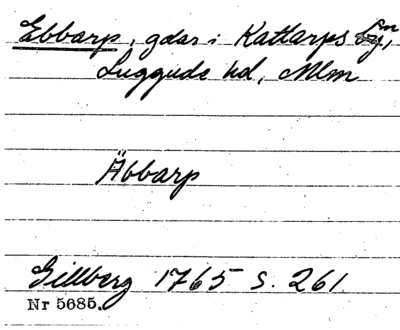 Ebbarp, gdar i Kattarps sn,
Luggude hd, Mlm
Äbbarp
Gillberg 1765 s. 261.
Nr 5685.